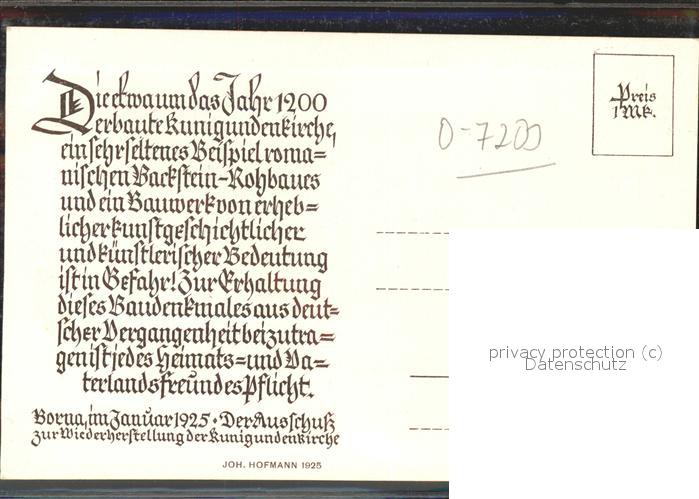 Die etwa um das Jahr 1200
erbaute Kunigundenkirche,
ein sehr seltenes Beispiel roma=
nischen Backstein-Rohbaues
und ein Bauwerk von erheb=
licher kunstgeschichtlicher
und künstlerischer Bedeutung
ist in Gefahr! Zur Erhaltung
dieses Baudenkmales aus deut=
scher Vergangenheit beizutra=
gen ist jedes Heimats= und Va=
terlandsfreundes Pflicht.
Borna, im Januar 1925 · Der Ausschuß
zur Wiederherstellung der Kunigundenkirche
JOH. HOFMANN 1925
Preis
1 Mk.
O-7200
privacy protection (c)
Datenschutz